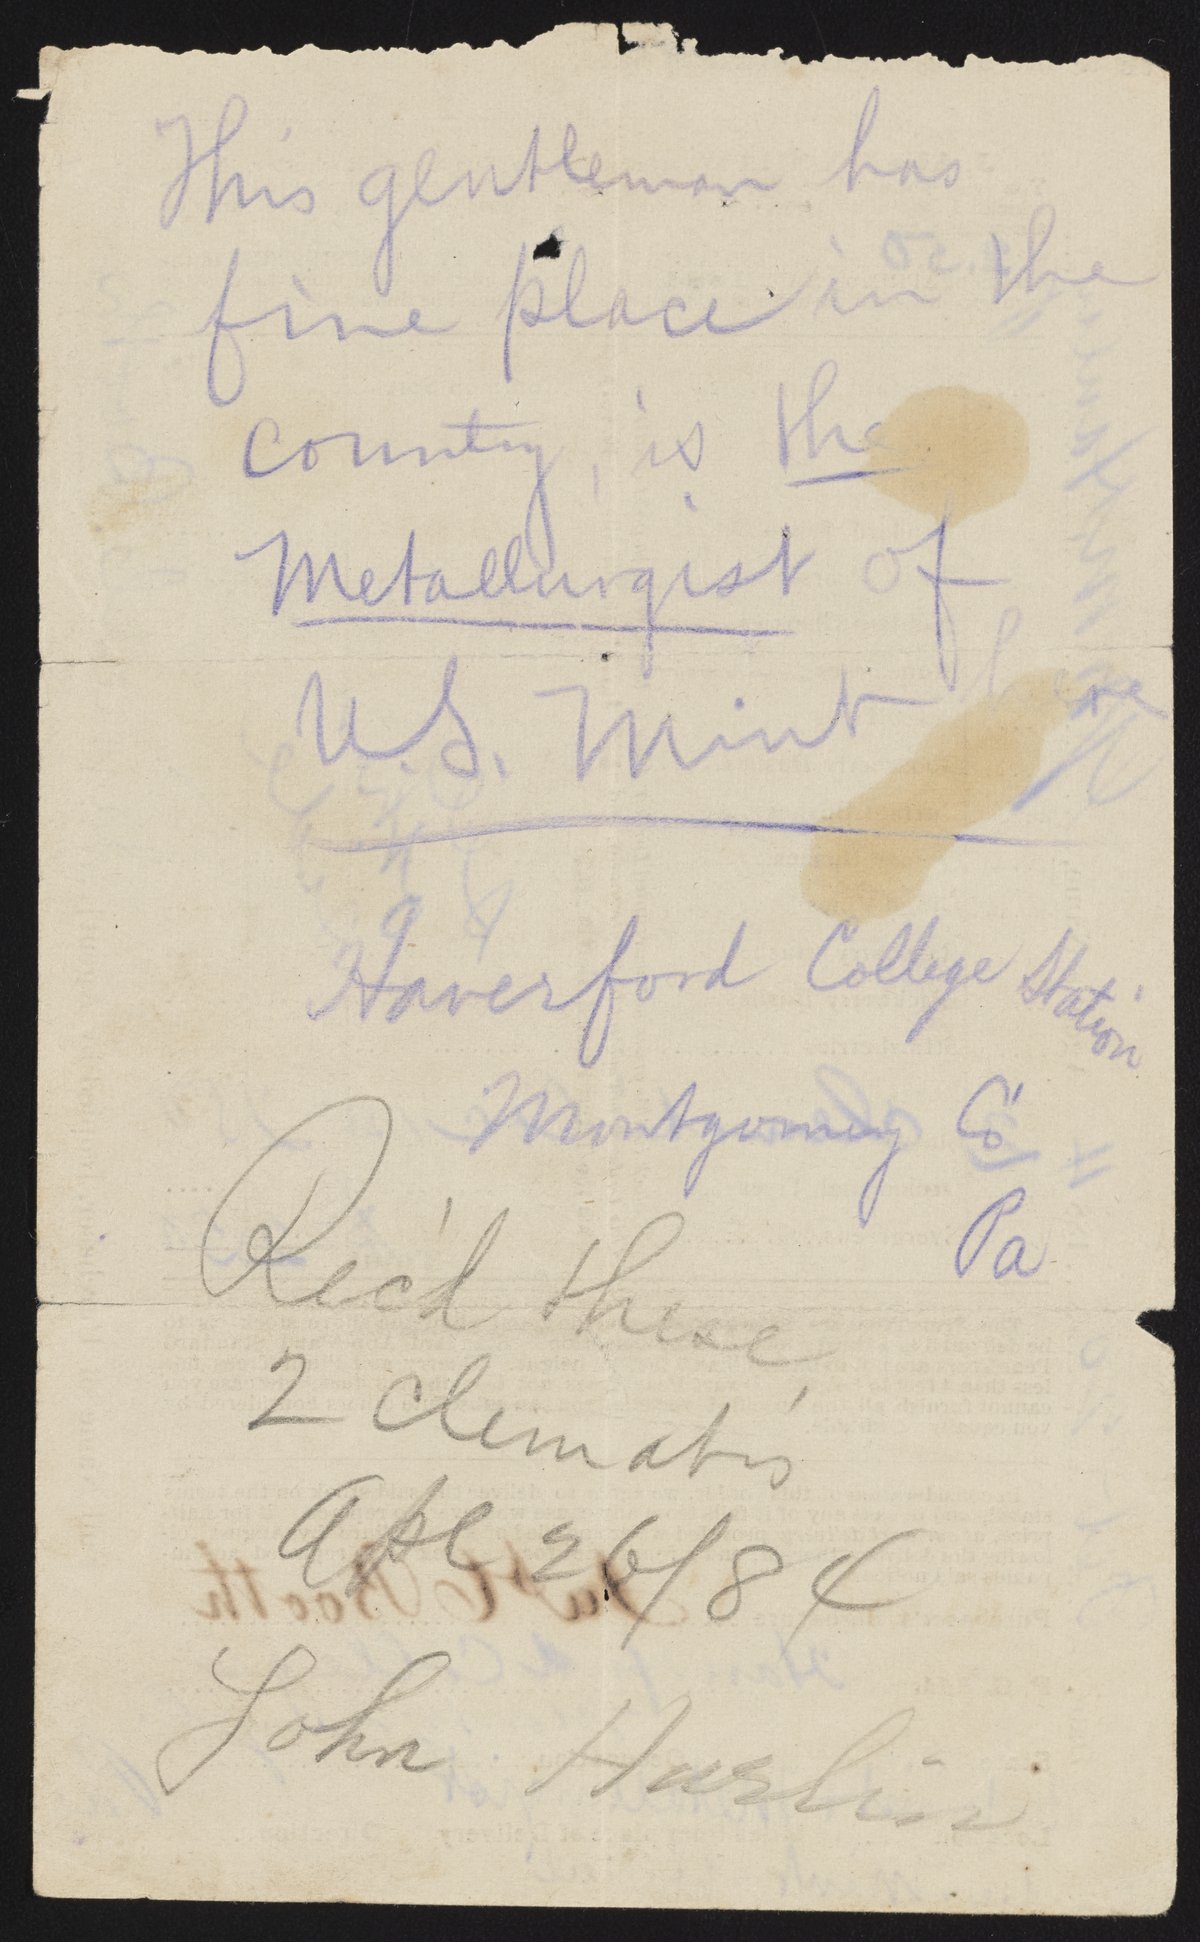 This gentleman has
fine place in the
country, is the
Metallurgist of
U.S. Mint here
Haverford College Station
Montgomery Co
Pa
Rec'd these
2 Clematis
Apl 26/84
John Harlin